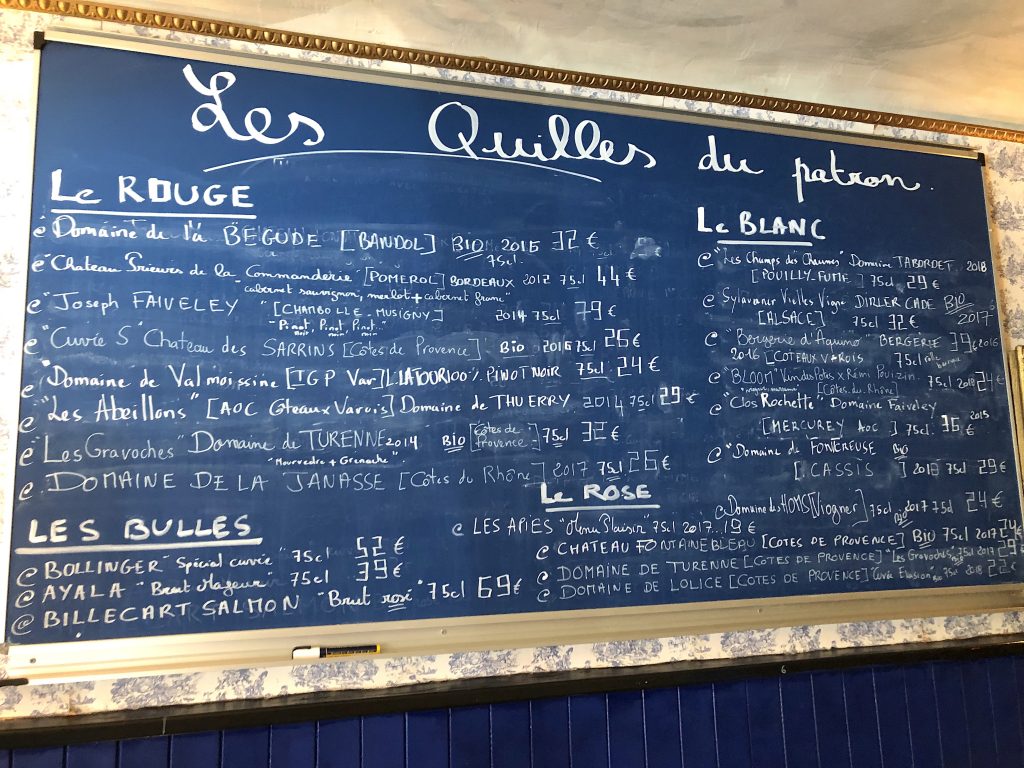 Les Quilles du patron.
Le ROUGE
Domaine de la BEGUDE [BANDOL] BIO 2015 32 €
75cl.
"Chateau Prieures de la Commanderie" [POMEROL] BORDEAUX 2012 75cl 44 €
- cabernet sauvignon, merlot + cabernet franc -
"Joseph FAIVELEY" [CHAMBOLLE-MUSIGNY] 2014 75cl 79 €
"Pinot, Pinot, Pinot"
noir noir noir
"Cuvée S" Chateau des SARRINS [Côtes de Provence] Bio 2015 75cl 26 €
"Domaine de Valmoissine [IGP Var] L.LATOUR 100% PINOT NOIR 75cl 24 €
"Les Abeillons" [AOC Coteaux Varois] Domaine de THUERRY 2014 75cl 29 €
"Les Gravoches" Domaine de TURENNE 2014 BIO [Côtes de Provence] 75cl 32 €
"Mourvedre + Grenache"
DOMAINE DE LA JANASSE [Côtes du Rhône] 2017 75cl 26 €
LES BULLES
BOLLINGER "Spécial cuvée" 75cl 52 €
AYALA "Brut Majeur" 75cl 39 €
BILLECART SALMON "Brut rosé" 75cl 69 €
Le BLANC
"Les Champs des Chaumes" Domaine TABORDET 2018
[POUILLY-FUME] 75cl 29 €
Sylavaner Vielles Vigne DIRLER CADE BIO
[ALSACE] 75cl 32 € 2017
"Bergerie d'Aquino" BERGERIE 39 €
2016 [COTEAUX VAROIS 75cl
"BLOOM" Vin des Potes x Rémi Pouizin 75cl 2018 24 €
[Côtes du Rhône]
"Clos Rochette" Domaine Faiveley
[MERCUREY AOC] 75cl 36 € 2015
"Domaine de FONTCREUSE Bio
[CASSIS] 2018 75cl 29 €
Domaine des HOMS [Viogner] 75cl Bio 2017 75cl 24 €
Le ROSE
LES APIES "Menu Plaisir" 75cl 2017. 19 €
CHATEAU FONTAINEBLEAU [COTES DE PROVENCE] BIO 75cl 2017 24 €
DOMAINE DE TURENNE [COTES DE PROVENCE] "Les Gravoches" 75cl 2017 29 €
DOMAINE DE LOLICE [COTES DE PROVENCE] Cuvée Evasion" 75cl 2018 22 €